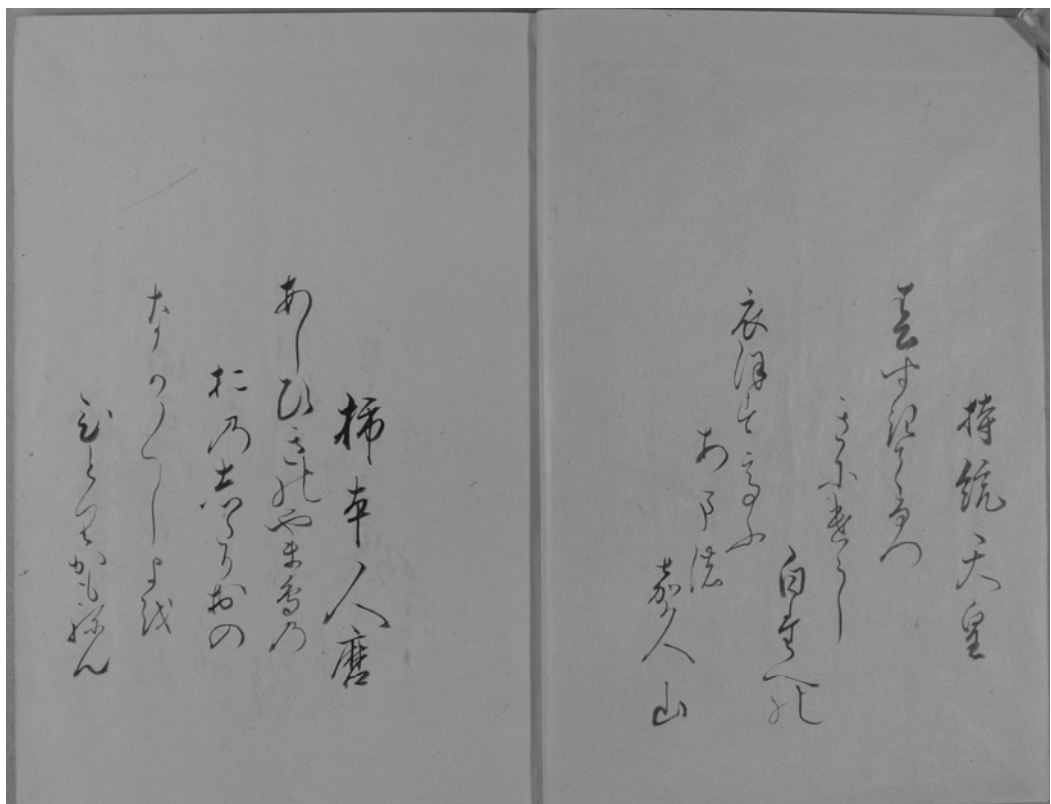 持統天皇
春すきてなつ
きにけらし
白たへの
衣ほすてふ
あまの
かく山
柿本人麿
あしひきのやま鳥の
おのしたりおの
なか〱しよを
ひとりかもねん